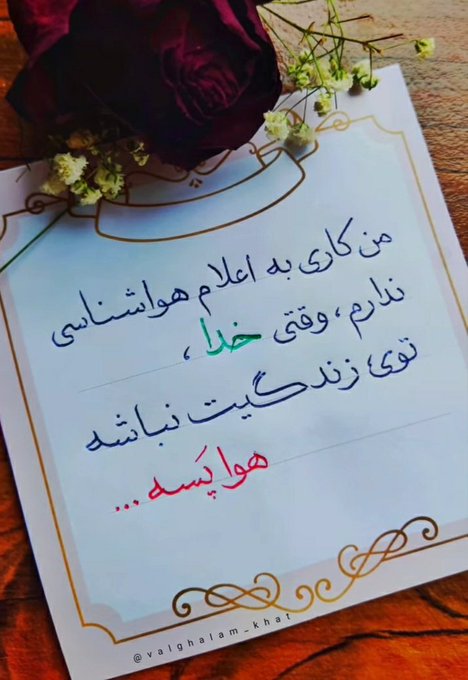 من کاری به اعلام هواشناسی
ندارم، وقتی خدا،
توی زندگیت نباشه
هوا پَسه ...
@valghalam_khat